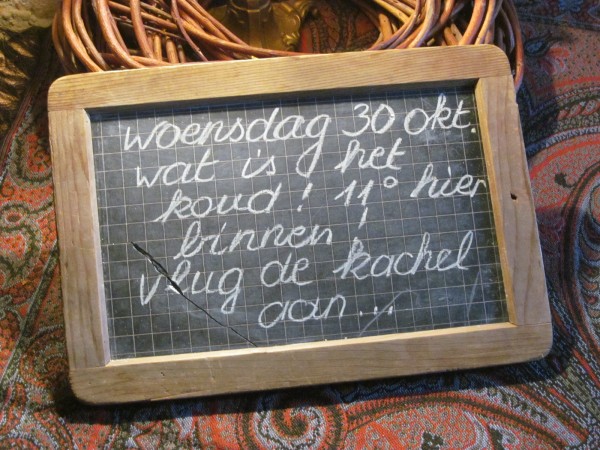 woensdag 30 okt.
wat is het
koud! 11° hier
binnen!
vlug de kachel
aan...